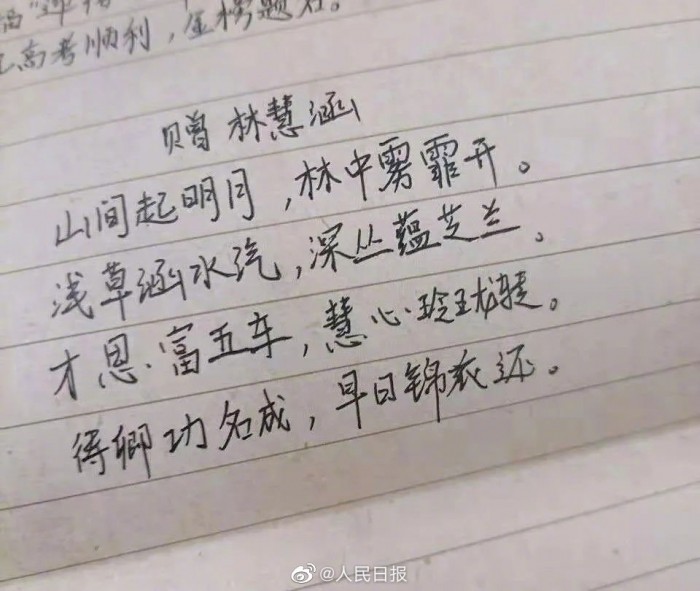 高考顺利，金榜题名。
赠 林慧涵
山间起明月，林中雾霏开。
浅草涵水汽，深丛蕴芝兰。
才思富五车，慧心玲珑捷。
得卿功名成，早日锦衣还。
@人民日报